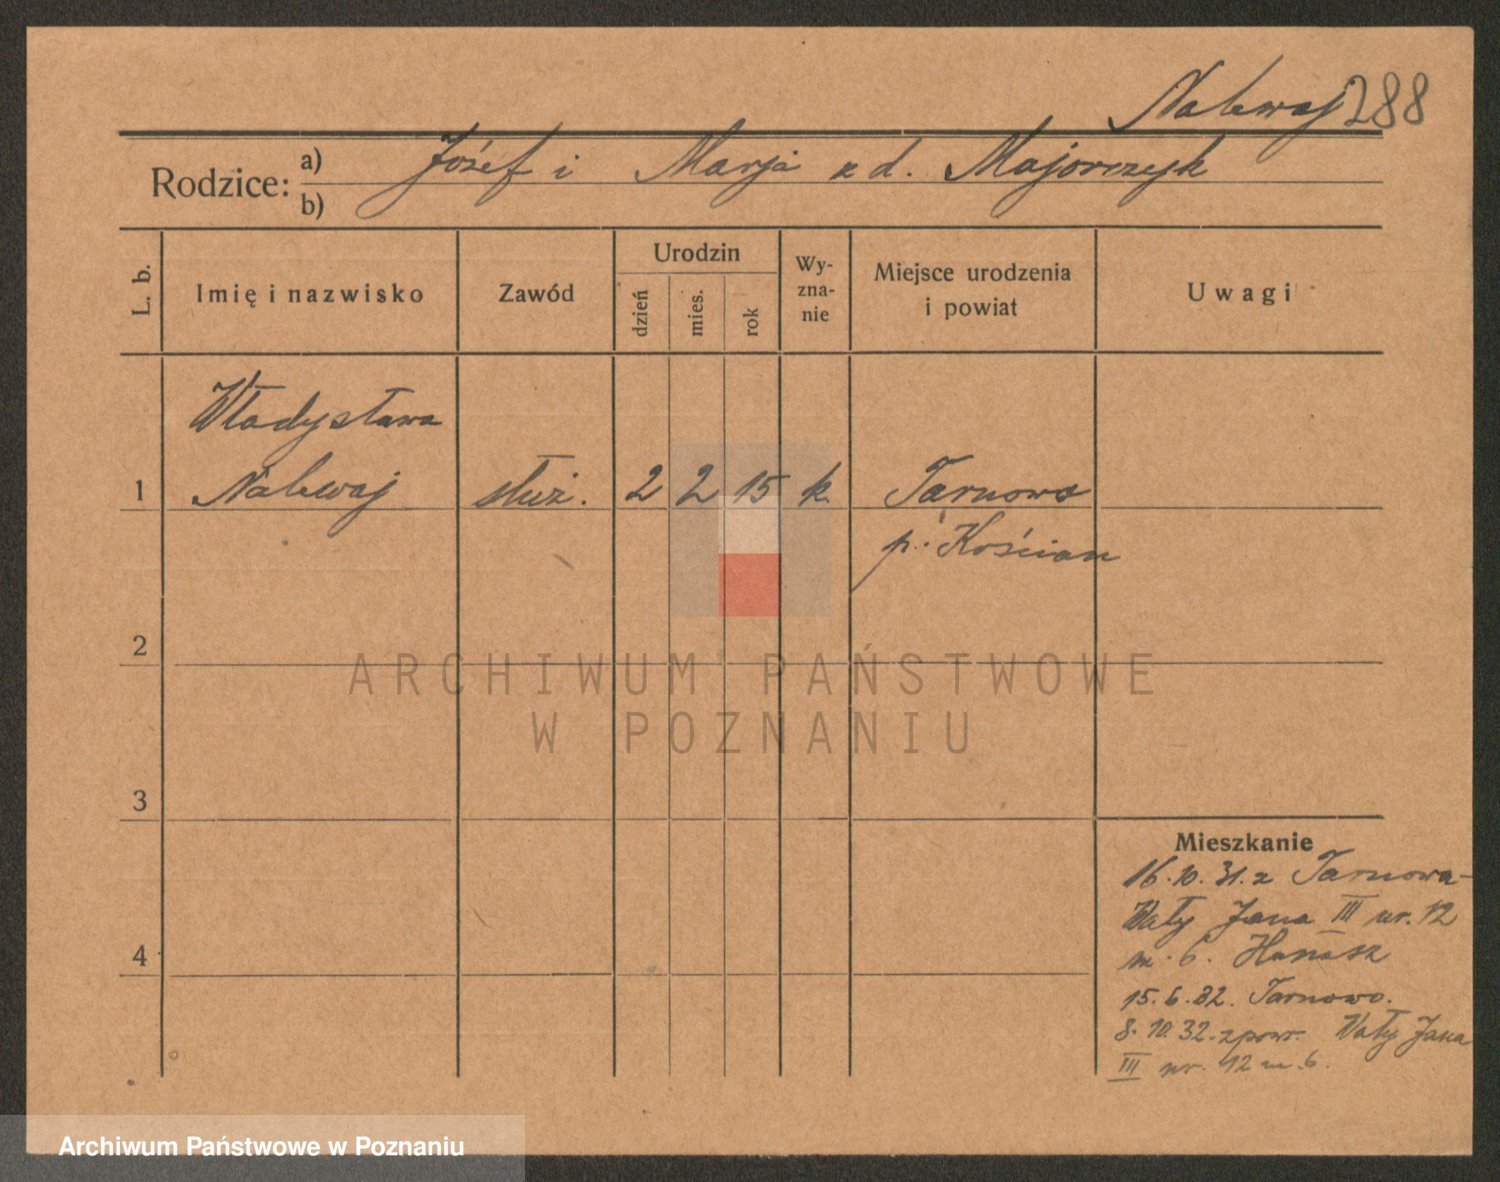 Nalewaj 288
Rodzice: a) Józef i Marja z d. Majorczyk
b)
L. b. Imię i nazwisko Zawód Urodzin dzień mies. rok Wy-zna-nie Miejsce urodzenia i powiat Uwagi
Władysława
1 Nalewaj służ. 2 2 15 k Tarnowo
p. Kościan
2
ARCHIWUM PAŃSTWOWE
W POZNANIU
3
Mieszkanie
16.10.31. z Tarnowa-
Wały Jana III nr. 12
4
m. 6.
15.6.32. Tarnowo.
8.10.32. zpow. Wały Jana
III nr. 12 m. 6.
Archiwum Państwowe w Poznaniu